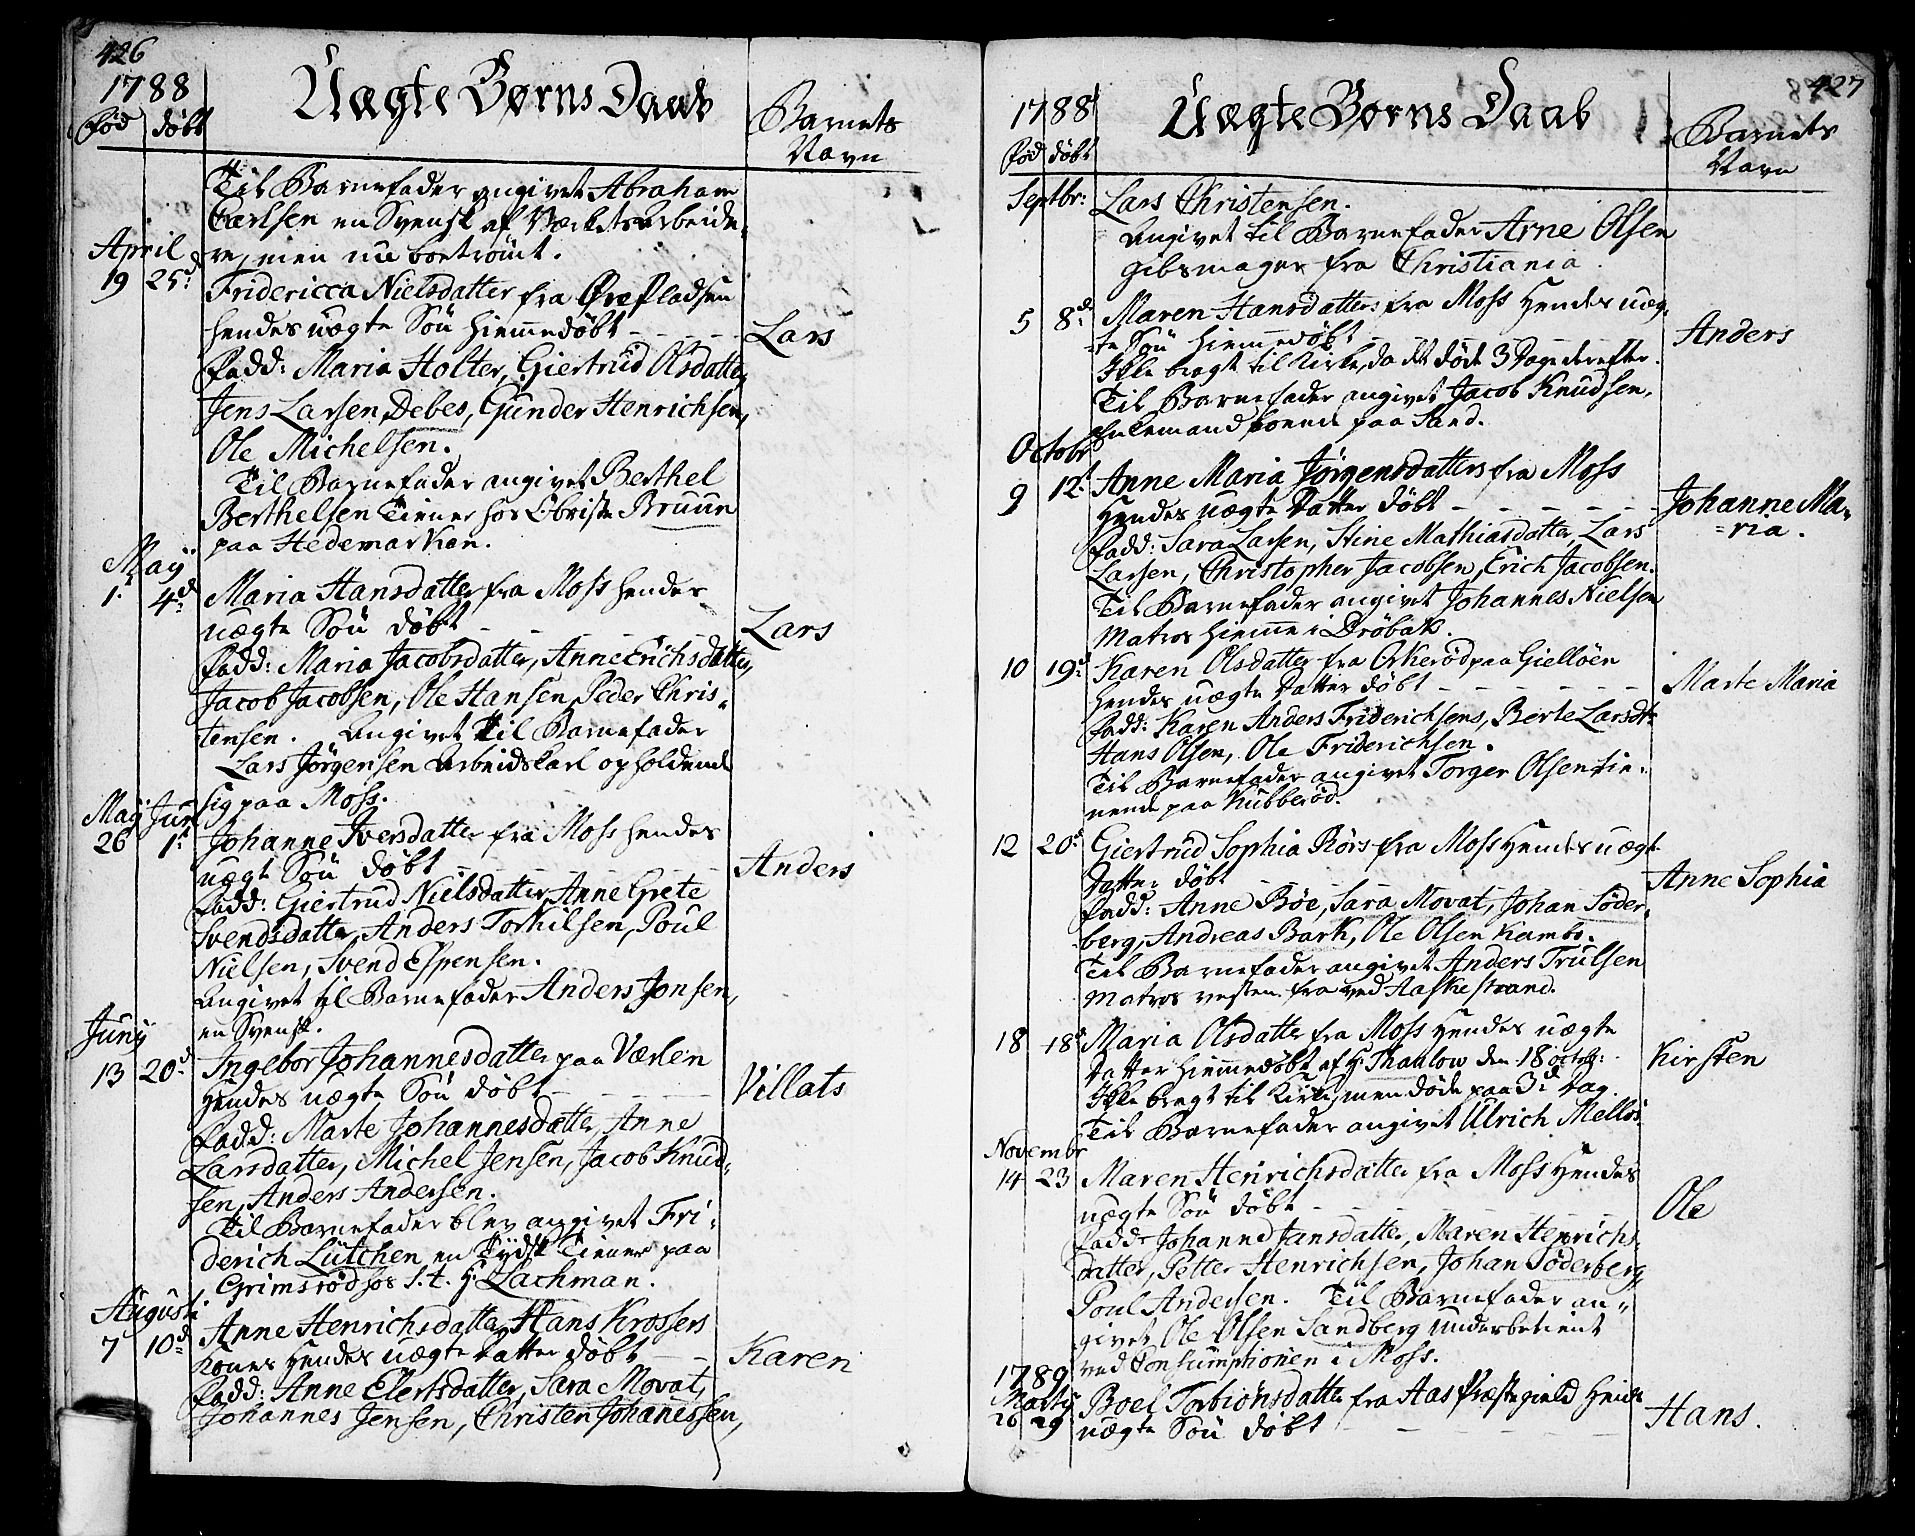 426
1788
Uægte Børns Daab
Barnets
Navn
Fød døbt
Til Barnefader angivet Abraham
Carlsen en Svensk af Værkets arbeide-
re, men nu bortrömt.
April
19 25d
Fridericca Nielsdatter fra Øre Pladsen
hendes uægte Sön hiemmedøbt - - - Lars
Fadd: Maria Holter, Giertrud Olsdatter,
Jens Larsen Debes, Gunder Henrichsen,
Ole Michelsen.
Til Barnefader angivet Berthel
Berthelsen Tiener hos Obriste Bruun
paa Hedemarken.
Maÿ
1. 4d Maria Hansdatter fra Moss hendes
uægte Sön döbt - - - Lars
Fadd: Maria Jacobsdatter, Anne Erichsdatter,
Jacob Jacobsen, Ole Hansen, Peder Chris-
tensen. Angivet Til Barnefader
Lars Jörgensen Arbeidskarl opholdende
sig paa Moss.
Maÿ Jun
26 1d Johanne Iversdatter fra Moss hendes
uægte Sön döbt - - - Anders
Fadd: Giertrud Nielsdatter, Anne Grete
Svendsdatter, Anders Torkilsen, Poul
Nielsen, Svend Espensen.
Angivet til Barnefader Anders Jonsen,
en Svensk.
Junÿ
13 20d Ingebor Johannesdatter paa Værlen
Hendes uægte Sön döbt - - - Villats
Fadd: Marte Johannesdatter, Anne
Larsdatter, Michel Jensen, Jacob Knud-
sen, Anders Andersen.
Til Barnefader blev angivet Fri-
derich Lütchen en Tydsk Tiener paa
Grimsröd hos S.t. H: Lachman.
Augusti
7 10d Anne Henrichsdatter, Hans Krossers
Kones Hendes uægte Datter döbt - - Karen
Fadd: Anne Elertsdatter, Sara Movat,
Johannes Jensen, Christen Johanessen,
427
1788
Uægte Børns Daab
Barnets
Navn
Fød døbt
Septbr: Lars Christensen.
Angivet til Barnefader Arne Olsen
Gibsmager fra Christiania.
5 8d Maren Hansdatters fra Moss Hendes uæg-
te Sön hiemmedöbt - - - Anders
Ikke bragt til Kirke, da det døde 3 Dage derefter.
Til Barnefader angivet Jacob Knudsen,
Enkemand boende paa Sand.
Octobr
9 12d Anne Maria Jörgensdatters fra Moss
Hendes uægte Datter döbt - - - Johanne Ma-
=ria.
Fadd: Sara Larsen, Stine Mathiasdatter, Lars
Larsen, Christopher Jacobsen, Erich Jacobsen.
Til Barnefader angivet Johannes Nielsen
Matros hiemme i Dröbak.
10 19d Karen Olsdatter fra Orkeröd paa Gielløen
Hendes uægte Datter döbt - - - Marte Maria
Fadd: Karen Anders Friderichsens, Berte Larsdr
Hans Olsen, Ole Friderichsen.
Til Barnefader angivet Torger Olsen tie-
nende paa Kubberöd.
12 20d Giertrud Sophia Rörs fra Moss Hendes uægte
Datter döbt - - - Anne Sophia
Fadd: Anne Böe, Sara Movat, Johan Söder-
berg, Andreas Bark, Ole Olsen Kambo.
Til Barnefader angivet Anders Trulsen
Matros vesten fra ved Aaskestrand.
18 18d Maria Olsdatter fra Moss Hendes uægte
Datter hiemmedöbt af H: Thaulow den 18 octob: Kirsten
Ikke bragt til Kirke, men döde paa 3d Dag
Til Barnefader angivet Ulrich Mellos.
Novembr
14 23 Maren Henrichsdatter fra Moss Hendes
uægte Sön döbt - - - Ole
Fadd: Johanne Jansdatter, Maren Henrichs-
datter, Petter Henrichsen, Johan Söderberg,
Poul Andersen. Til Barnefader an-
givet Ole Olsen Sandberg Underbetient
ved Consumptionen i Moss.
1789
Martÿ
26 29 Boel Torbiönsdatter fra Aas Præstegield Hendes
uægte Sön döbt - - - Hans.